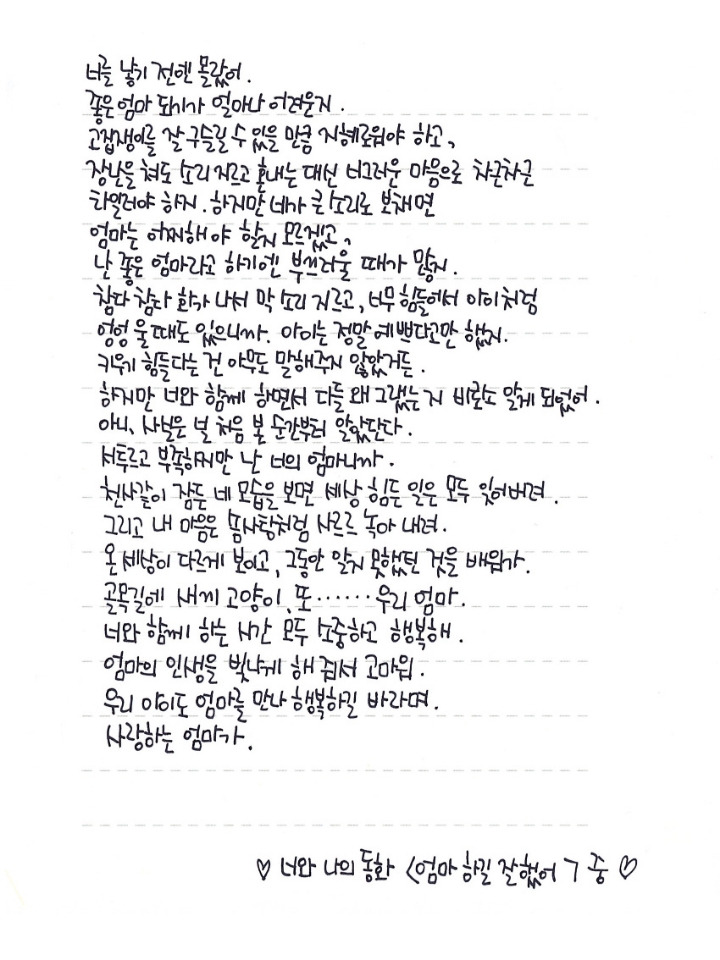 너를 낳기 전엔 몰랐어.
좋은 엄마 되기가 얼마나 어려운지.
고집쟁이를 잘 구슬릴 수 있을 만큼 지혜로워야 하고,
장난을 쳐도 소리 지르고 혼내는 대신 너그러운 마음으로 차근차근
타일러야 하지. 하지만 네가 큰 소리로 보채면
엄마는 어찌해야 할지 모르겠고,
난 좋은 엄마라고 하기엔 부끄러울 때가 많지.
참다 참다 화가 나서 막 소리 지르고, 너무 힘들어서 아이처럼
엉엉 울 때도 있으니까. 아이는 정말 예쁘다고만 했지.
키우기 힘들다는 건 아무도 말해주지 않았거든.
하지만 너와 함께 하면서 다들 왜 그랬는지 비로소 알게 되었어.
아니, 사실은 널 처음 본 순간부터 알았단다.
서투르고 부족하지만 난 너의 엄마니까.
천사같이 잠든 네 모습을 보면 세상 힘든 일은 모두 잊어버려.
그리고 내 마음은 솜사탕처럼 사르르 녹아 내려.
온 세상이 다르게 보이고, 그동안 알지 못했던 것을 배워가.
골목길에 새끼 고양이, 또……우리 엄마.
너와 함께 하는 시간 모두 소중하고 행복해.
엄마의 인생을 빛나게 해 줘서 고마워.
우리 아이도 엄마를 만나 행복하길 바라며.
사랑하는 엄마가.
♡ 너와 나의 동화 <엄마 하길 잘했어> 중 ♡